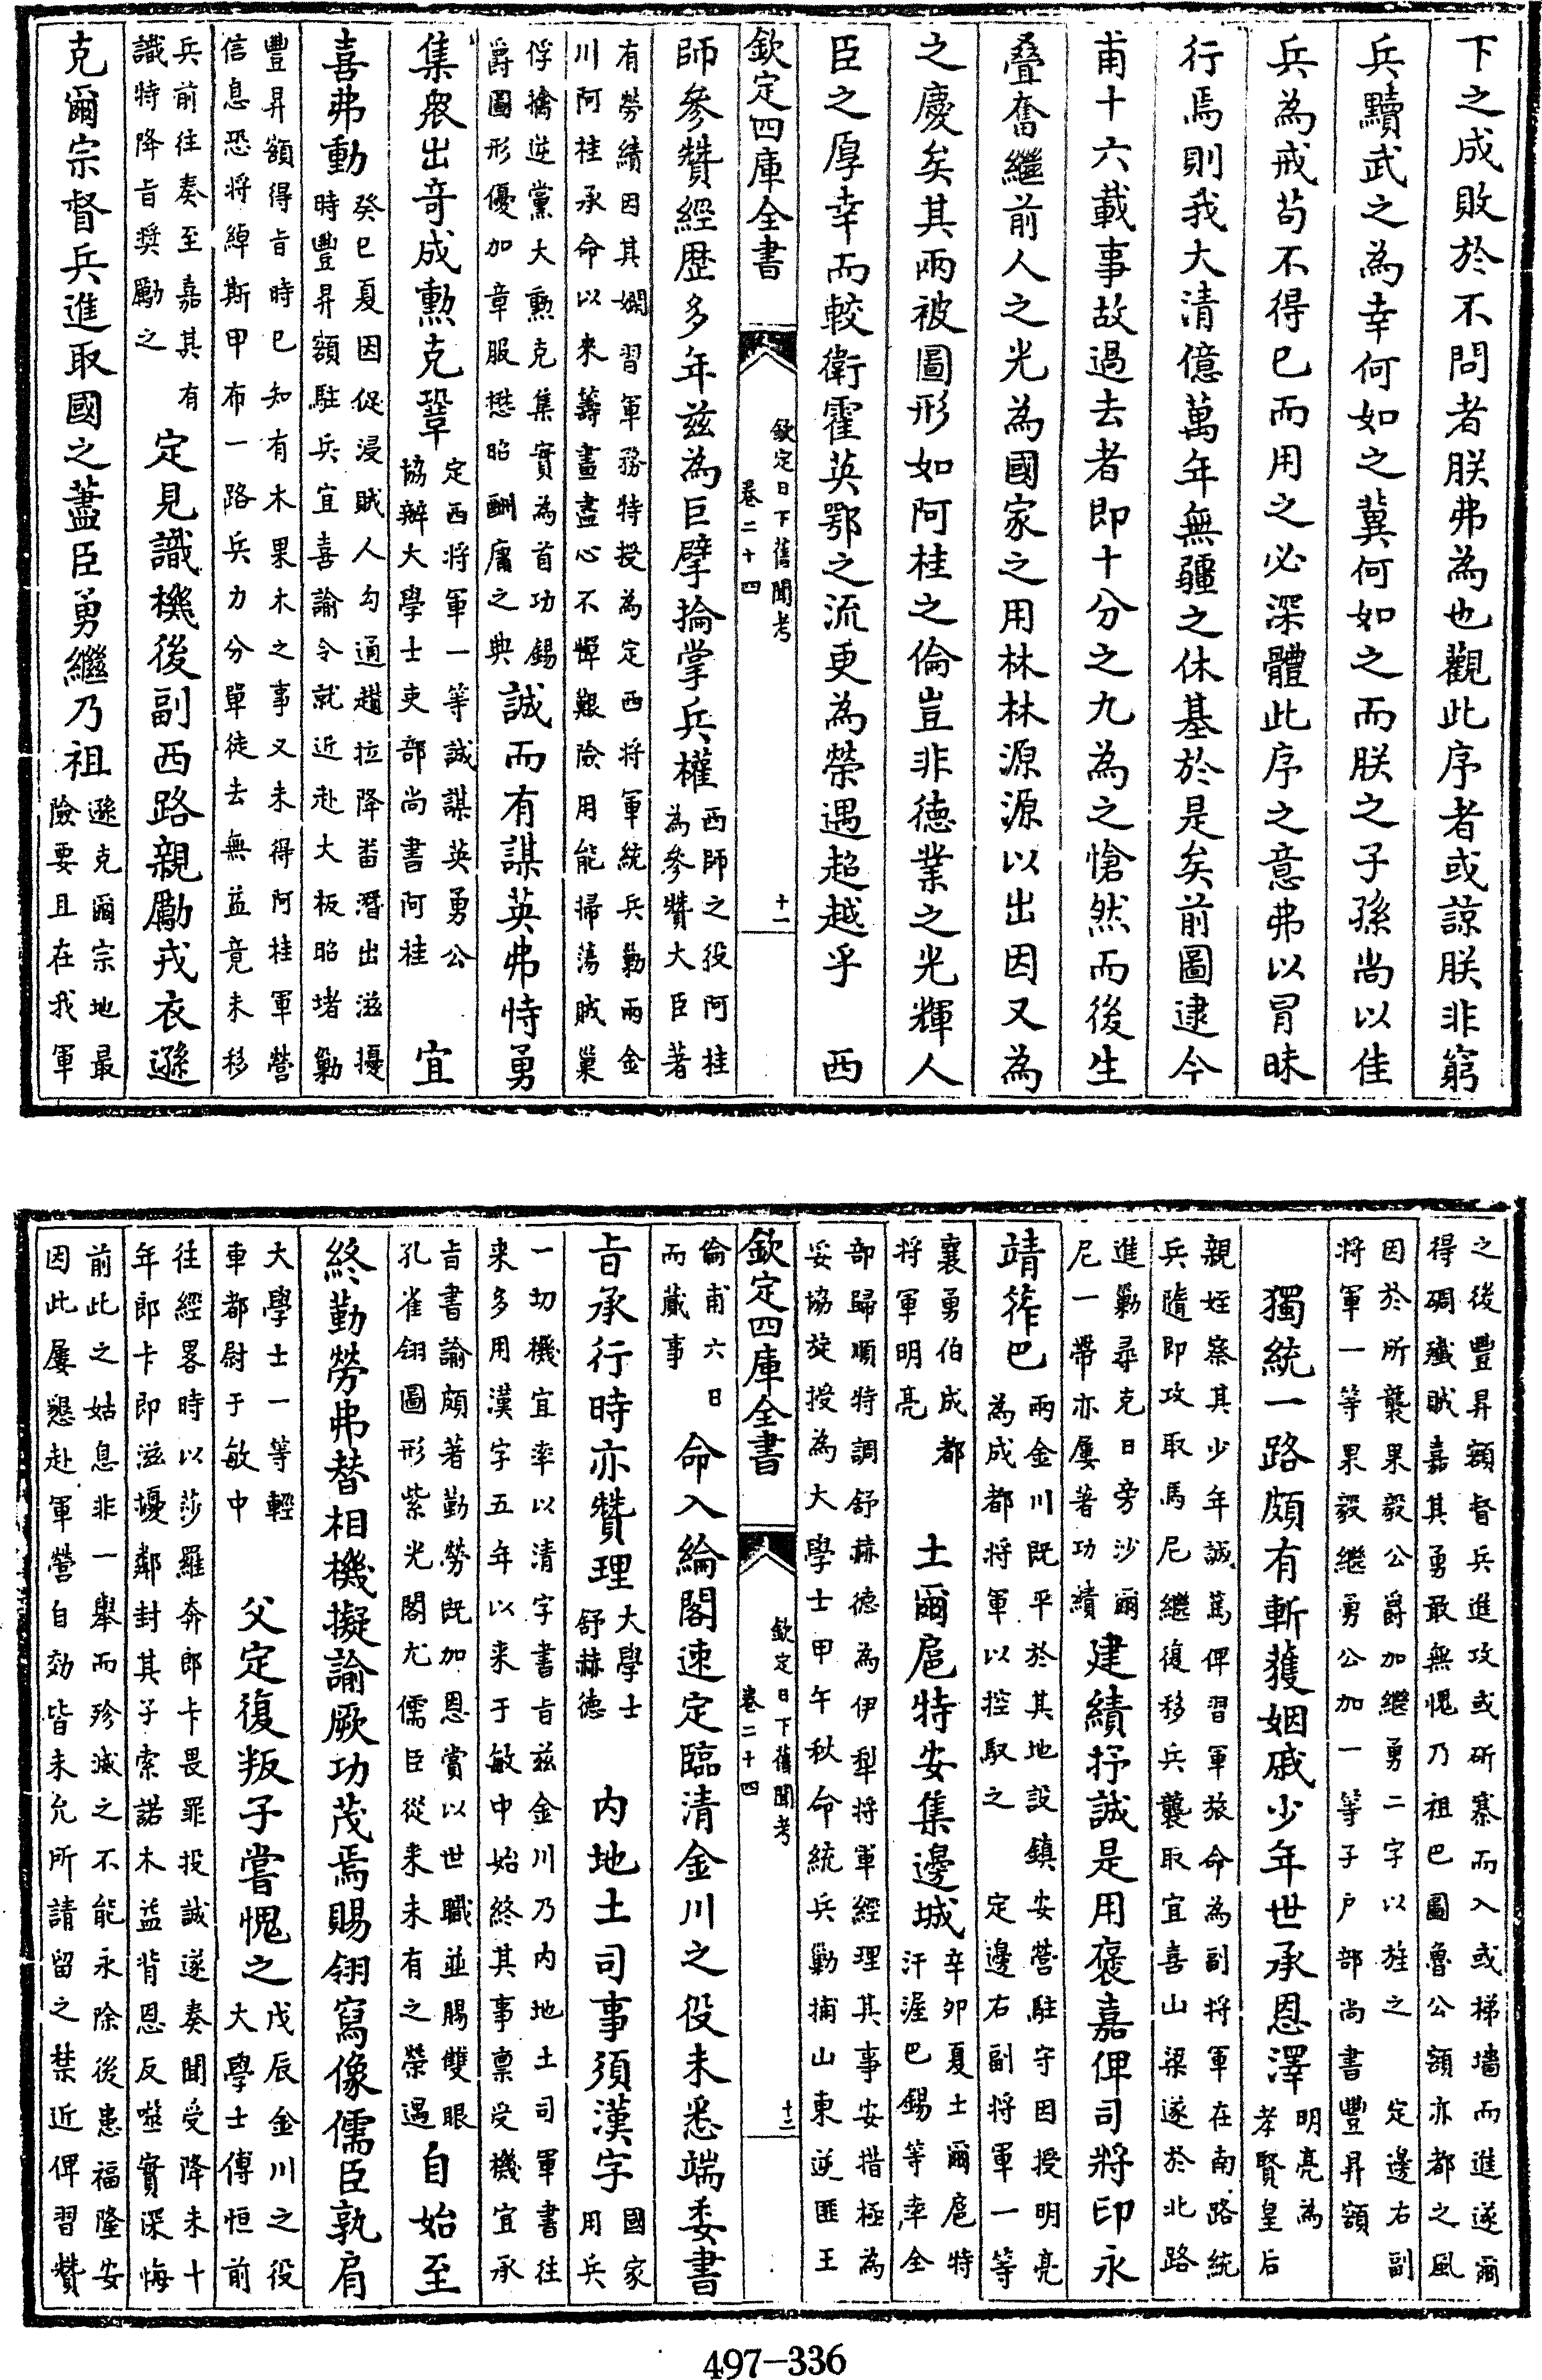 下之成敗於不問者朕弗為也觀此序者或諒朕非窮
兵黷武之為幸何如之冀何如之而朕之子孫尚以佳
兵為戒苟不得已而用之必深體此序之意弗以冒昧
行焉則我大清億萬年無疆之休基於是矣前圖逮今
甫十六載事故過去者即十分之九為之愴然而後生
叠奮繼前人之光為國家之用林林源源以出因又為
之慶矣其兩被圖形如阿桂之倫豈非德業之光輝人
臣之厚幸而較衛霍英鄂之流更為榮遇超越乎　西
欽定四庫全書
欽定日下舊聞考
卷二十四
十一
師參贊經歴多年兹為巨擘掄掌兵權
西師之役阿桂
為參贊大臣著
有勞績因其嫻習軍務特授為定西将軍統兵勦兩金
川阿桂承命以來籌畫盡心不憚艱險用能掃蕩賊巢
俘擒逆黨大勲克集實為首功錫
爵圖形優加章服懋昭酬庸之典
誠而有謀英弗恃勇
集衆出竒成勲克鞏
定西将軍一等誠謀英勇公
協辦大學士吏部尚書阿桂
宜
喜弗動
癸巳夏因促浸賊人勾通趲拉降畨潛出滋擾
時豐昇額駐兵宜喜諭令就近赴大板昭堵勦
豐昇額得㫖時已知有木果木之事又未得阿桂軍營
信息恐将綽斯甲布一路兵力分單徒去無益竟未移
兵前往奏至嘉其有
識特降㫖奬勵之
定見識機後副西路親勵戎衣遜
克爾宗督兵進取國之藎臣勇繼乃祖
遜克爾宗地最
險要且在我軍
之後豐昇額督兵進攻或斫寨而入或梯墻而進遂爾
得碉殱賊嘉其勇敢無愧乃祖巴圖魯公額亦都之風
因於所襲果毅公爵加繼勇二字以旌之　定邊右副
将軍一等果毅繼勇公加一等子户部尚書豐昇額
獨統一路頗有斬獲姻戚少年世承恩澤
明亮為
孝賢皇后
親姪察其少年誠篤俾習軍旅命為副将軍在南路統
兵隨即攻取馬尼繼復移兵襲取宜喜山梁遂於北路
進勦尋克日旁沙爾
尼一帶亦屢著功績
建績抒誠是用褒嘉俾司將印永
靖筰巴
兩金川既平於其地設鎮安營駐守因授明亮
為成都将軍以控馭之　定邊右副将軍一等
襄勇伯成都
将軍明亮
土爾扈特安集邊城
辛卯夏土爾扈特
汗渥巴錫等率全
部歸順特調舒赫德為伊犁将軍經理其事安措極為
妥協旋授為大學士甲午秋命統兵勦捕山東逆匪王
欽定四庫全書
欽定日下舊聞考
卷二十四
十二
倫甫六日
而蕆事
命入綸閣速定臨清金川之役未悉端委書
㫖承行時亦贊理
大學士
舒赫德
内地土司事須漢字
國家
用兵
一切機宜率以清字書㫖兹金川乃内地土司軍書往
来多用漢字五年以来于敏中始終其事禀受機宜承
㫖書諭頗著勤勞既加恩賞以世職並賜雙眼
孔雀翎圖形紫光閣尤儒臣從来未有之榮遇
自始至
終勤勞弗替相機擬諭厥功茂焉賜翎寫像儒臣孰肩
大學士一等輕
車都尉于敏中
父定復叛子嘗愧之
戊辰金川之役
大學士傅恒前
往經畧時以莎羅奔郎卡畏罪投誠遂奏聞受降未十
年郎卡即滋擾鄰封其子索諾木益背恩反噬實深悔
前此之姑息非一舉而殄滅之不能永除後患福隆安
因此屢懇赴軍營自効皆未允所請留之禁近俾習贊
497-336